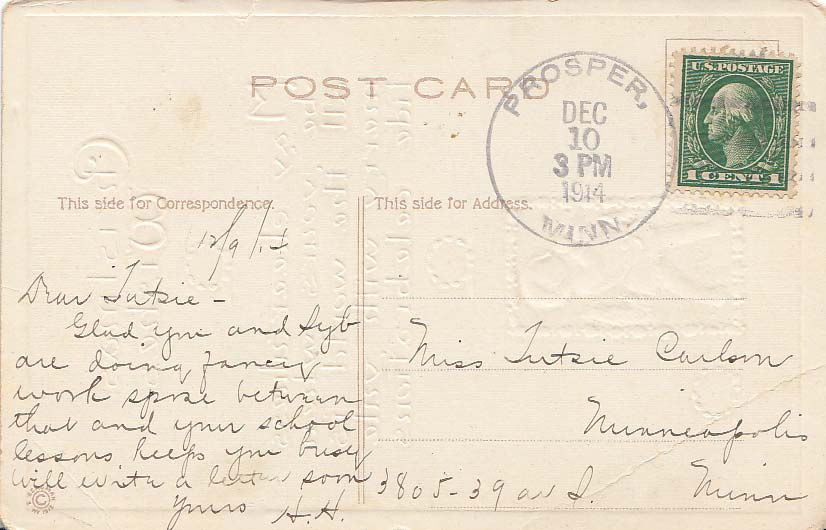 POST CARD
PROSPER,
DEC
10
3 PM
1914
MINN.
U.S. POSTAGE
1 CENT 1
This side for Correspondence.
This side for Address.
12/9/14
Dear Tutsie –
Glad you and Syb
are doing fancy
work spose between
that and your school
lessons keeps you busy
will write a letter soon
Yours H.H.
Miss Tutsie Carlson
Minneapolis
3805-39 av S. Minn